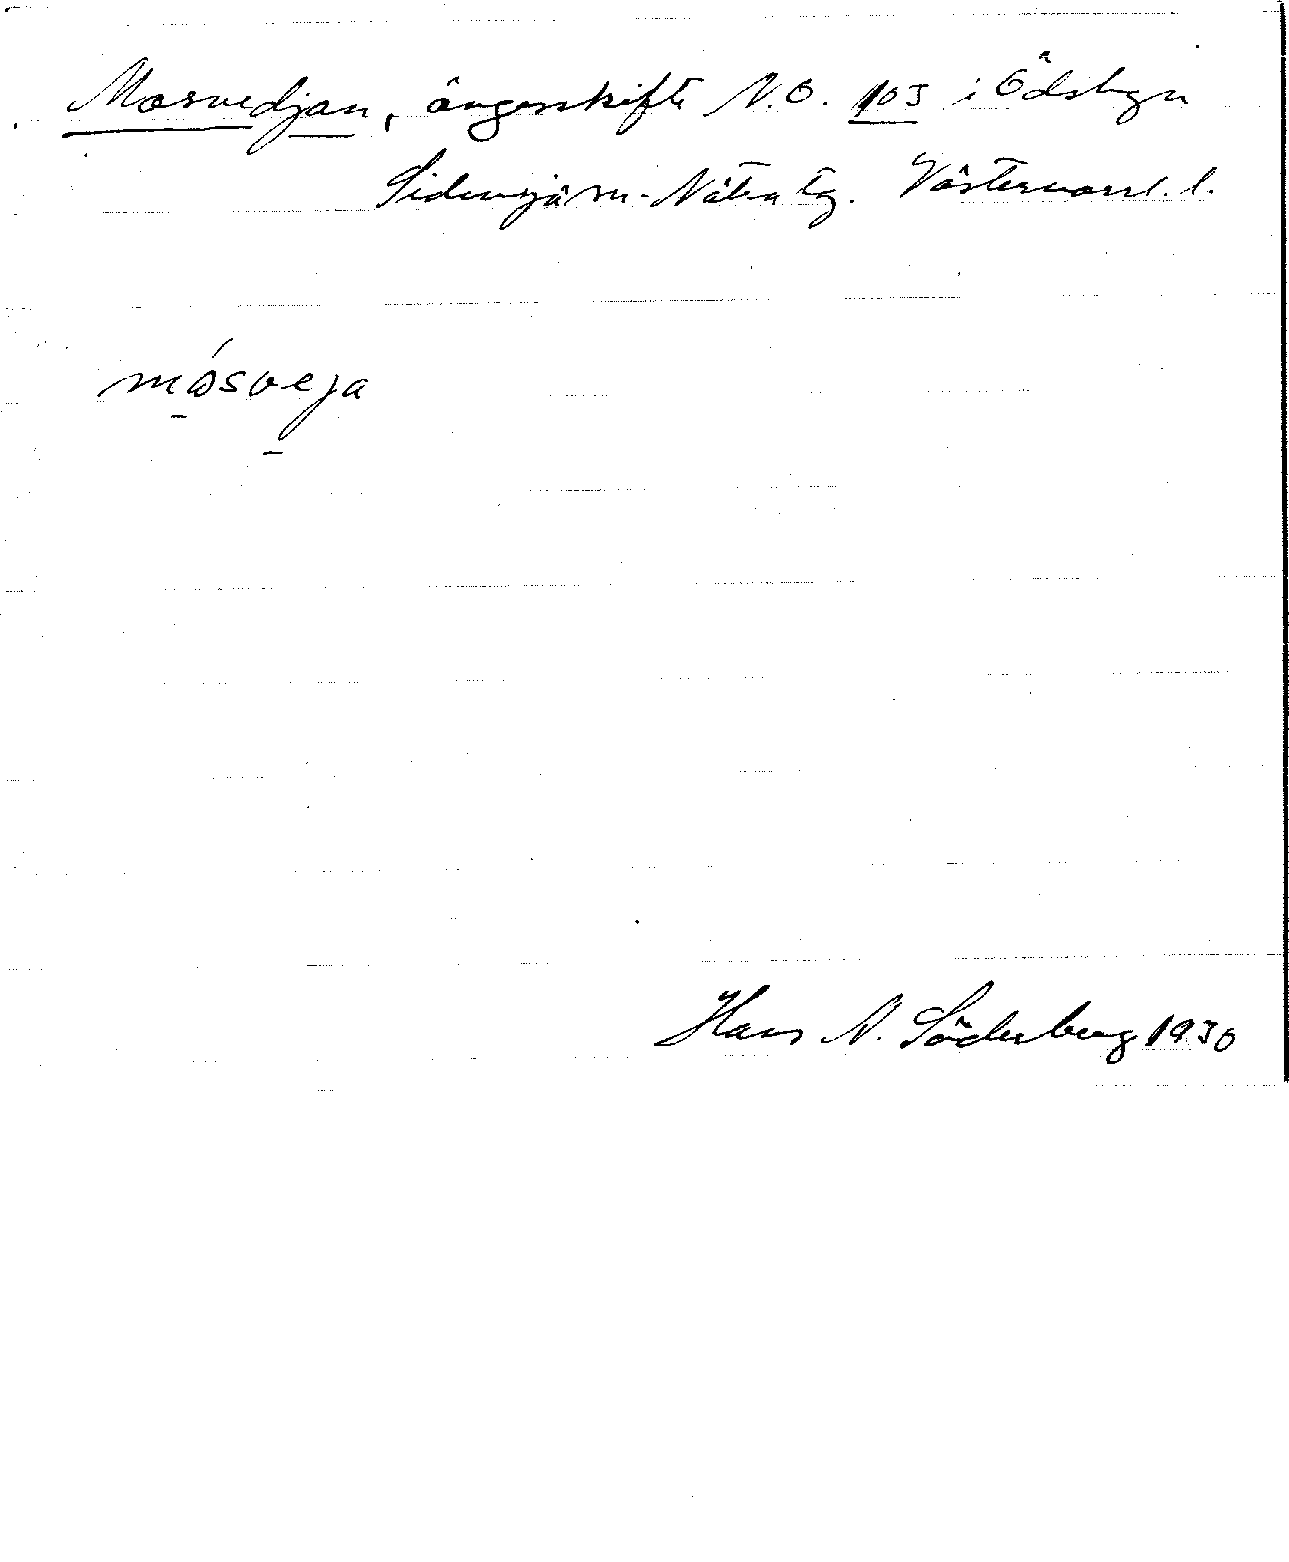 Mosvedjan, ängesskifte N.O. 103 i Ödsbyn
Sidensjö sn. Nätra tg. Västernorrl. l.
mósveja
Hans N. Söderberg 1930